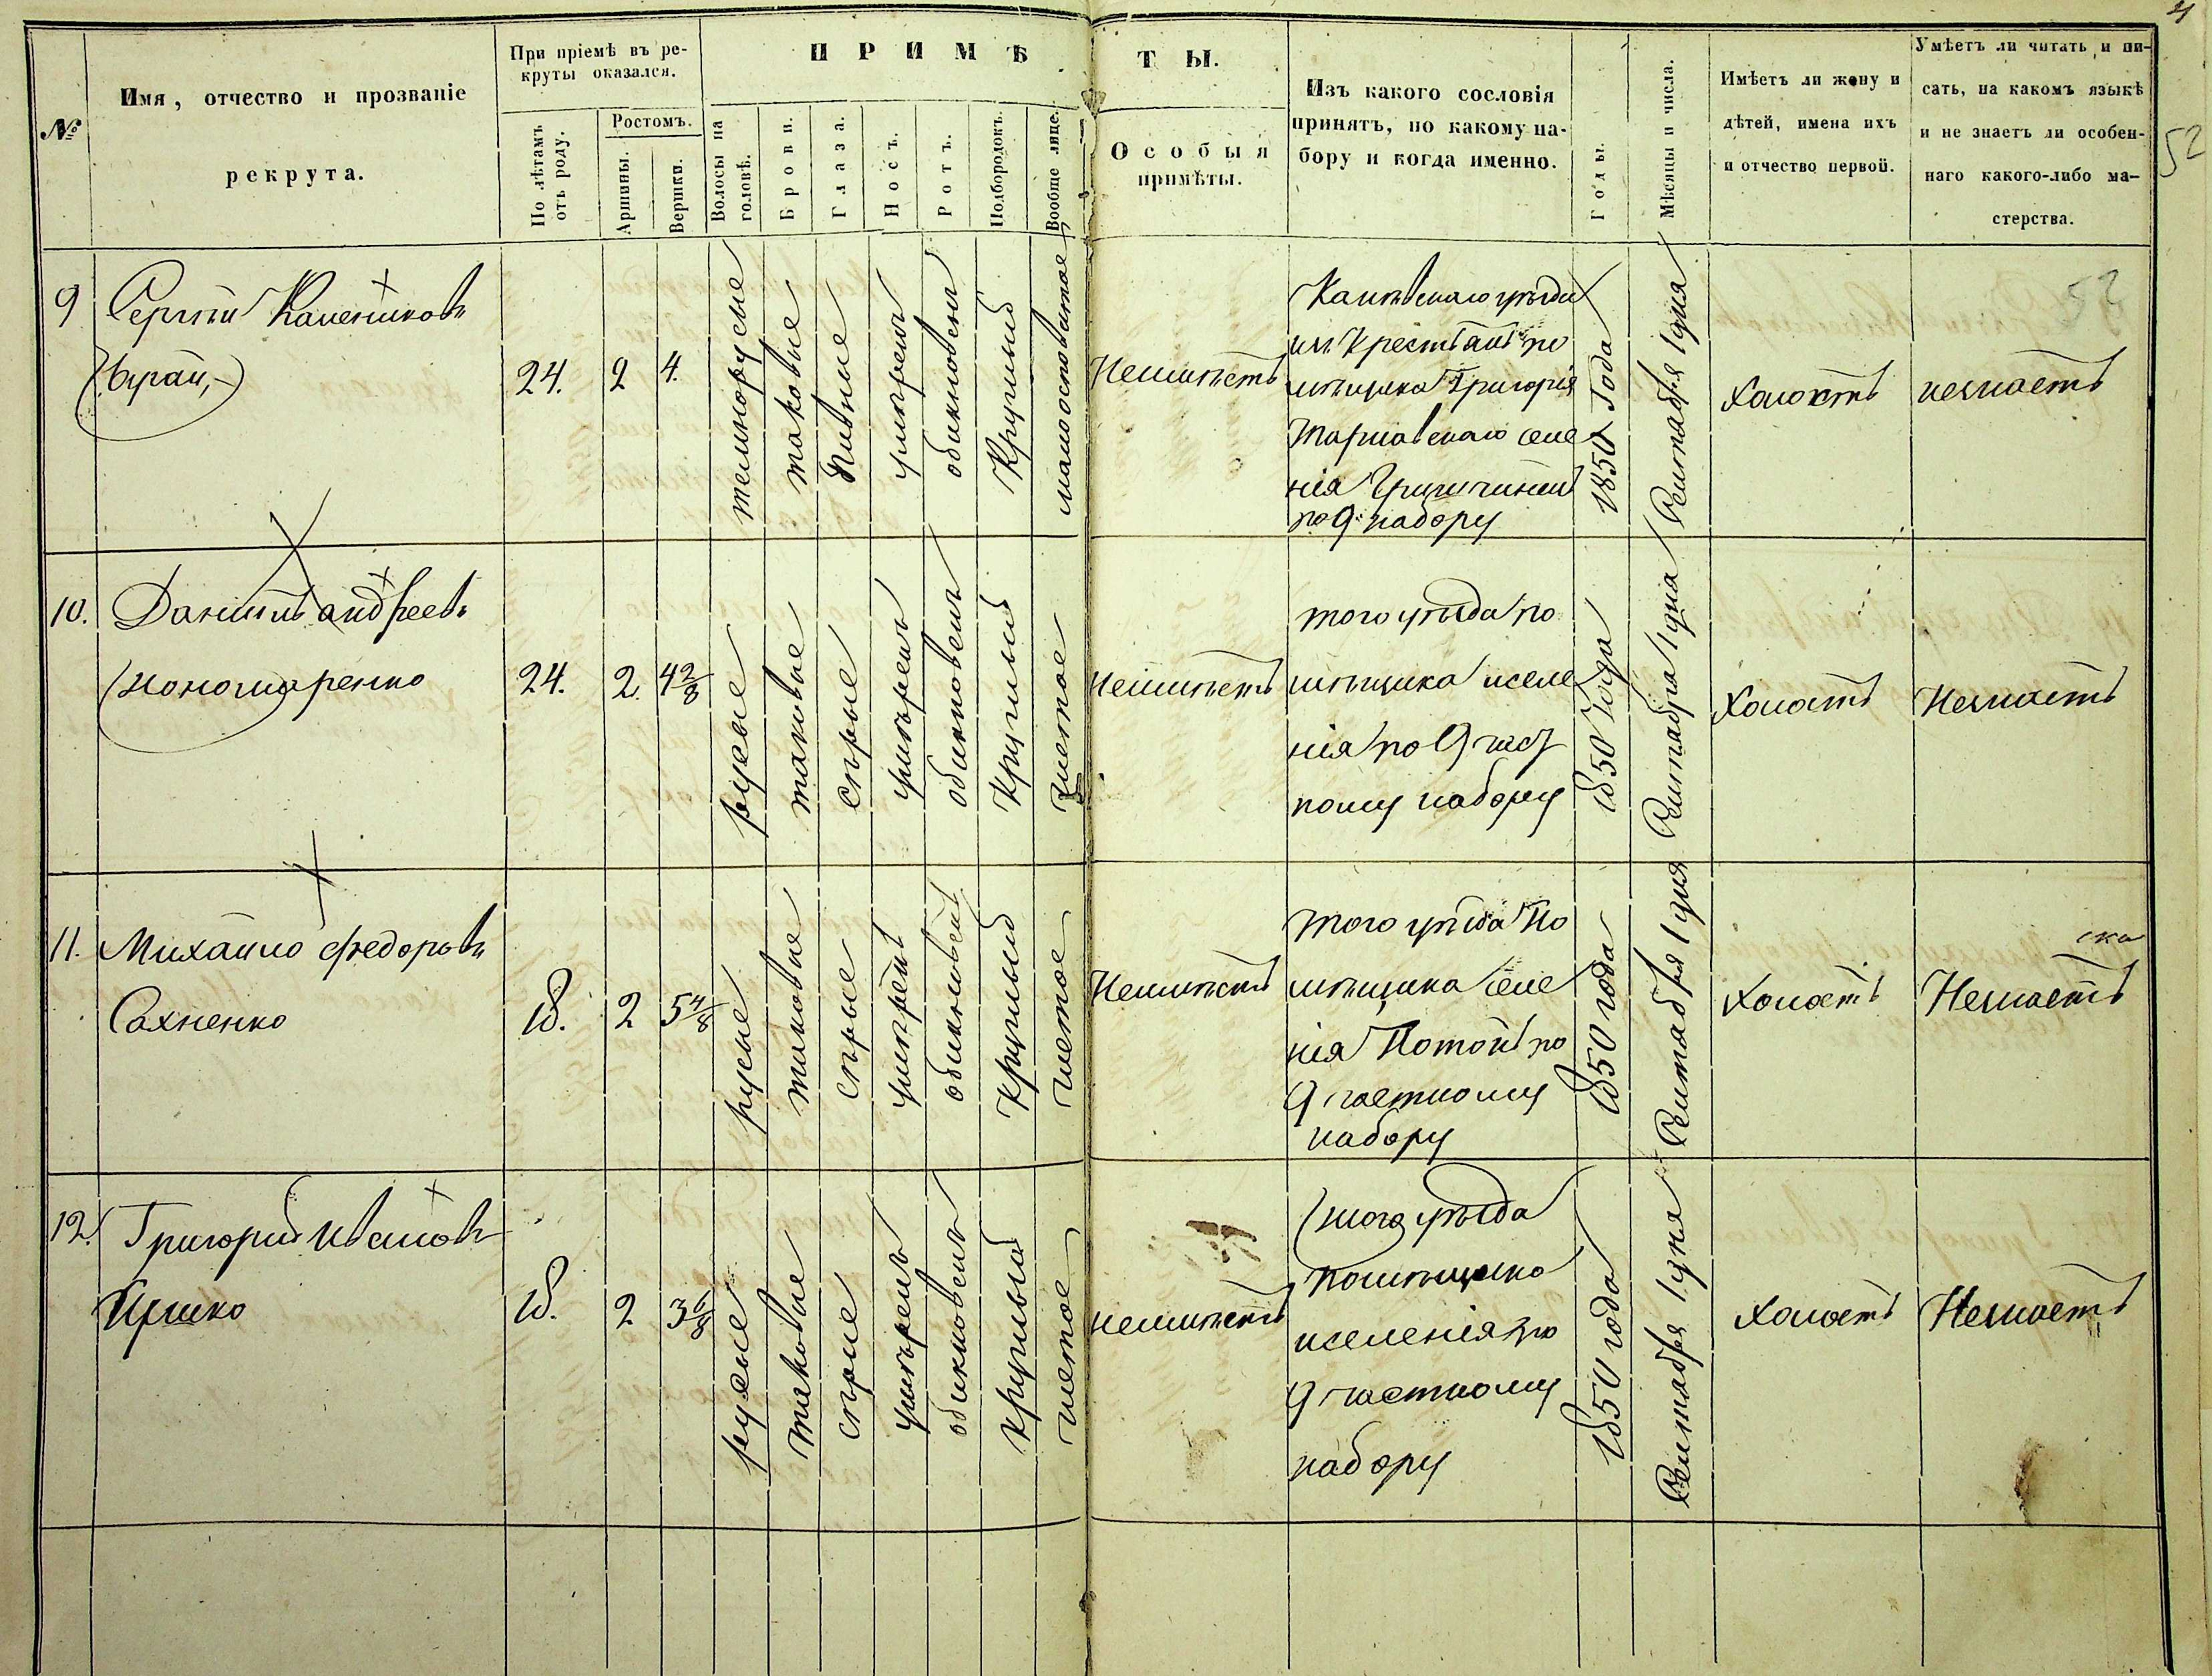 4
52
№
Имя, отчество и прозваніе
рекрута.
При пріемѣ въ ре-
круты оказался.
По лѣтамъ
отъ роду.
Ростомъ.
Аршины.
Вершки.
ПРИМѢ
ТЫ.
Волосы на
головѣ.
Брови.
Глаза.
Носъ.
Ротъ.
Подбородокъ.
Вообще лице.
Особыя
примѣты.
Изъ какого сословія
принятъ, по какому на-
бору и когда именно.
Годы.
Мѣсяцы и числа.
Имѣетъ ли жену и
дѣтей, имена ихъ
и отчество первой.
Умѣетъ ли читать и пи-
сать, на какомъ языкѣ
и не знаетъ ли особен-
наго какого-либо ма-
стерства.
53
9
Сергѣй Калениковъ
24.
2
4.
темнорусые
таковые
умѣренъ
обикновенъ
Круглый
Неимѣетъ
Каневскаго уѣзда
изъ Крестьянъ по
мѣщика Григорія
селе
нія
по 9. набору
1850 Года
Сентября 1 дня
Холостъ
незнаетъ
10.
Даніилъ Андреевъ
Пономаренко
24.
2.
4 2/8
русые
таковые
сѣрые
умѣренъ
обикновенъ
Круглый
чистое
Неимѣетъ
того уѣзда по
мѣщика иселе
нія по 9 част
ному набору
1850 Года
Сентября 1 дня
Холостъ
Незнаетъ
11.
Михайло Федоровъ
Сахненко
18.
2
5 4/8
русые
таковые
сѣрые
умѣренъ
обикновенъ
Круглый
чистое
Неимѣетъ
того уѣзда По
мѣщика селе
нія Потокъ по
9 частному
набору
1850 года
Сентября 1 дня
Холостъ
Незнаетъ
12.
Григорій Ивановъ
18.
2
3 6/8
русые
таковые
сѣрые
умѣренъ
обикновенъ
круглый
чистое
неимѣетъ
того уѣзда
помѣщика
иселенія по
9 частному
набору
1850 года
Сентября 1 дня
Холостъ
Незнаетъ